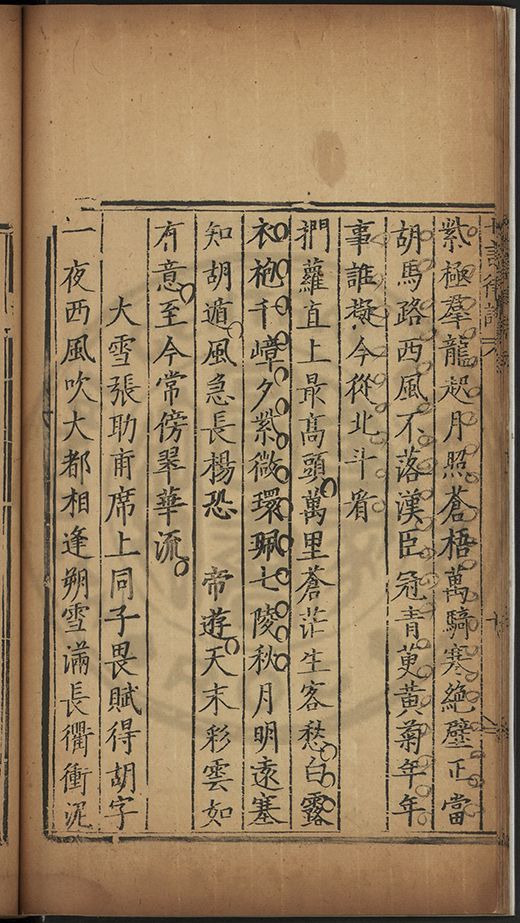 紫極羣龍起月照蒼梧萬騎寒絶壁正當
胡馬路西風不落漢臣冠青萸黃菊年年
事誰擬今從北斗㸔
捫蘿直上最高頭萬里蒼茫生客愁白露
衣袍千嶂夕紫微環珮七陵秋月明遠塞
知胡遁風急長楊恐 帝遊天末彩雲如
有意至今常傍翠華流
大雪張助甫席上同子畏賦得胡字
一夜西風吹大都相逢朔雪滿長衢衝泥